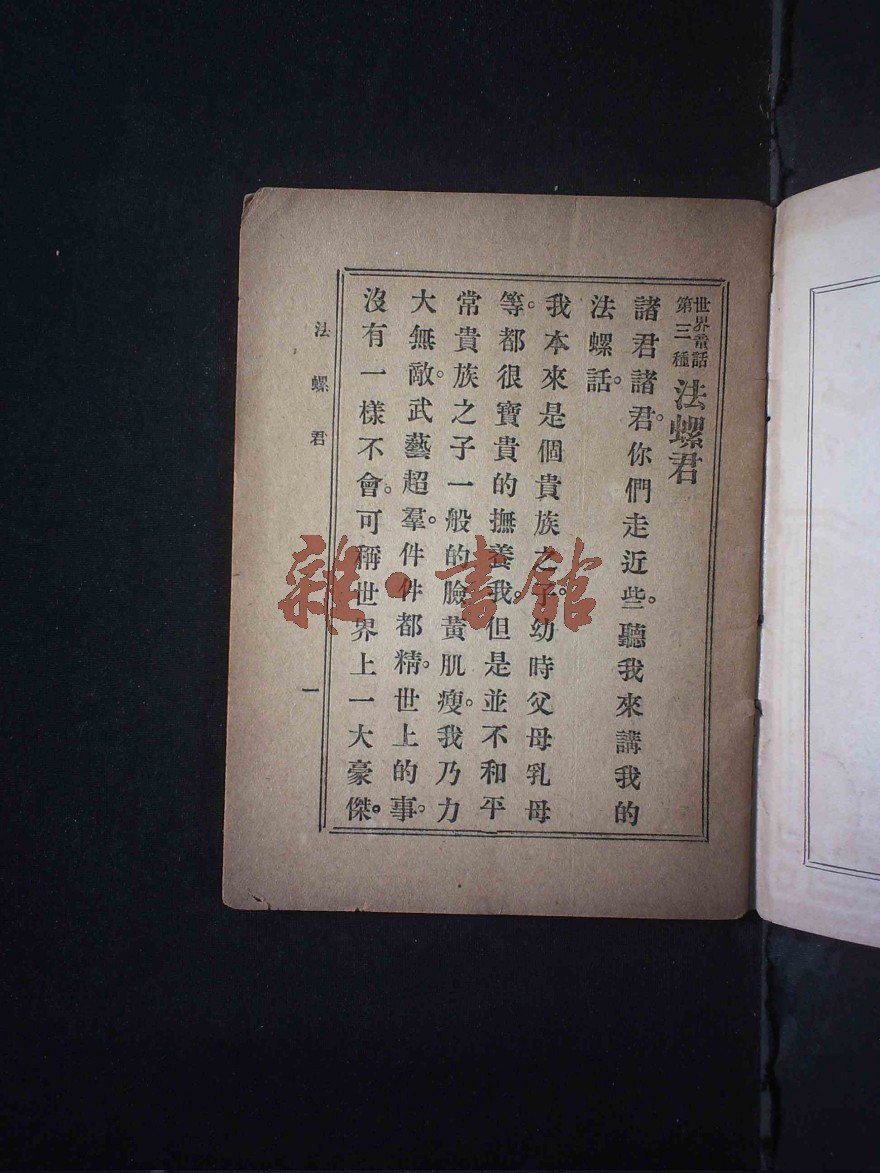 世界童話
第三種
法螺君
諸君諸君。你們走近些。聽我來講我的
法螺話。
我本來是個貴族之子。幼時父母乳母
等。都很寶貴的撫養我。但是並不和平
常貴族之子一般的臉黃肌瘦。我乃力
大無敵。武藝超羣。件件都精。世上的事。
沒有一樣不會。可稱世界上一大豪傑。
法螺君
一
雜·書館